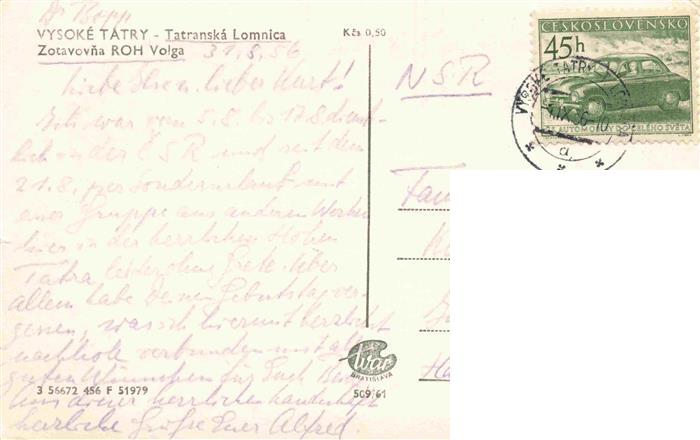 Dr Bopp
VYSOKÉ TATRY - Tatranská Lomnica
Zotavovňa ROH Volga
Kčs 0,50
31.8.56
Liebe Iren, lieber Kurt!
Ich war vom 5.8. bis 17.8 dienst-
lich in der ČSR und seit dem
21.8. per Sonderurlaub mit
einer Gruppe aus anderen Werken
hier in der herrlichen Hohen
Tatra leider ohne Grete. Über
allem habe Deinen Geburtstag ver-
gessen, was ich hiermit herzlichst
nachhole verbunden mit
guten Wünschen für Euch
Aus dieser herrlichen Landschaft
herzliche Grüße Euer Alfred.
NSR
ČESKOSLOVENSKO
45h
AUTOMOBILY DO CELÉHO SVĚTA
VYSOKÉ TATRY
a
Tvar
BRATISLAVA
3 56672 456 F 51979
509/61